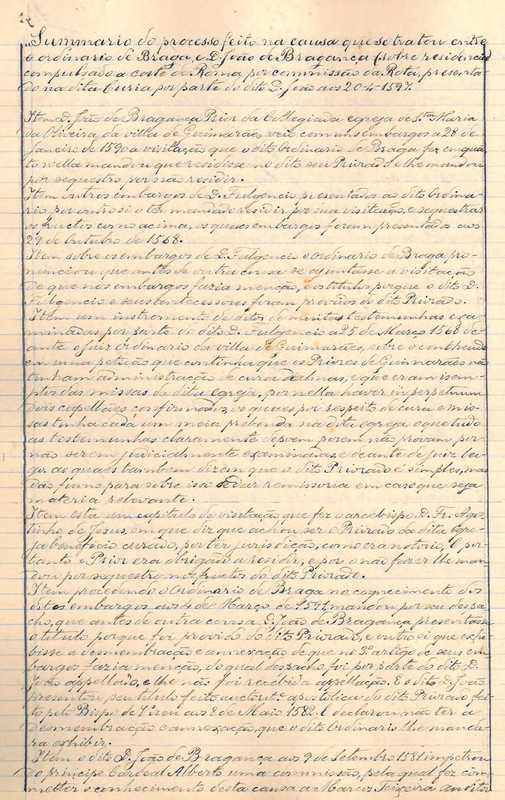 "Summario do processo feito na causa que se tratou entre
o ordinario de Braga, e D. João de Bragança (sobre residencia)
compulsado a corte de Roma por commissão da Rota, presenta-
do na dita Curia por parte do dito D. João aos 20-4-1597.
Item D. João de Bragança Prior da Collegiada egreja de Sta. Maria
da Oliveira, da villa de Guimarães, veio com uns embargos a 28 de
Janeiro de 1590 a visitação que o dito Ordinario de Braga fez em quan-
to nella mandou que residisse no dito seu Priorado e lhe mandou
por sequestro por não residir.
Item outros embargos de D. Fulgencio presentados ao dito Ordina-
rio por outro si o ter mandado residir por sua visitação, e sequestrar
os fructos como acima, os quaes embargos foram presentados aos
29 de Outubro de 1568.
Item sobre os embargos de D. Fulgencio o Ordinario de Braga pro-
nunciou que antes de outra cousa se ajuntasse a visitação
de que nos embargos fazia menção, e os titulos porque o dito D.
Fulgencio e seus antecessores foram providos do dito Priorado.
Item um instrumento de ditos de muitas testemunhas exa-
minadas por parte do dito D. Fulgencio a 25 de Março 1568 de-
ante o juiz Ordinario da villa de Guimarães, sobre o contheudo
em uma petição que continha que os Priores de Guimarães não
tinham administração de cura d'almas, e que eram isem-
ptos das missas da dita Egreja, por nella haver in perpetuum
dois capellães confirmados, os quaes por respeito de cura e mis-
sas tinha cada um meia prebenda na dita egreja o que tudo
as testemunhas claramente depoem porem não provam por
não serem judicialmente examinadas e deante de juiz lei-
go, as quaes tambem dizem que o dito Priorado é simples, mas
dão fumo para sobre isso se dar remissoria em caso que seja
materia relevante.
Item está um capitulo de visitação que fez o arcebispo D. Fr. Agos-
tinho de Jesus, em que diz que achou ser o Priorado da dita Egre-
ja beneficio curado, por ter jurisdição, como era notorio, e por
tanto o Prior era obrigado a residir, e por o não fazer lhe man-
dou por sequestro nos fructos do dito Priorado.
Item procedendo o Ordinario de Braga no conhecimento dos
ditos embargos aos 4 de Março de 1591 mandou por seu despa-
cho, que antes de outra cousa D. João de Bragança presentasse
o titulo porque foi provido do dito Priorado, e outro si que exhi-
bisse a desmembração e annexação de que no 3º artigo de seus em-
bargos fazia menção, do qual despacho foi por parte do dito D.
João appellado, e lhe não foi recebida appellação. E o dito D. João
presentou seu titulo feito auctoritate apostolica do dito Priorado fei-
to pelo Bispo de Vizeu aos 8 de Maio 1582. E declarou não ter a
desmembração e annexação, que o dito Ordinario lhe manda-
ra exhibir.
Item o dito D. João de Bragança aos 9 de Setembro 1581 impetrou
do principe Cardeal Alberto uma commissão, pela qual fez com-
metter o conhecimento desta causa a Marcos Teixeira auditor